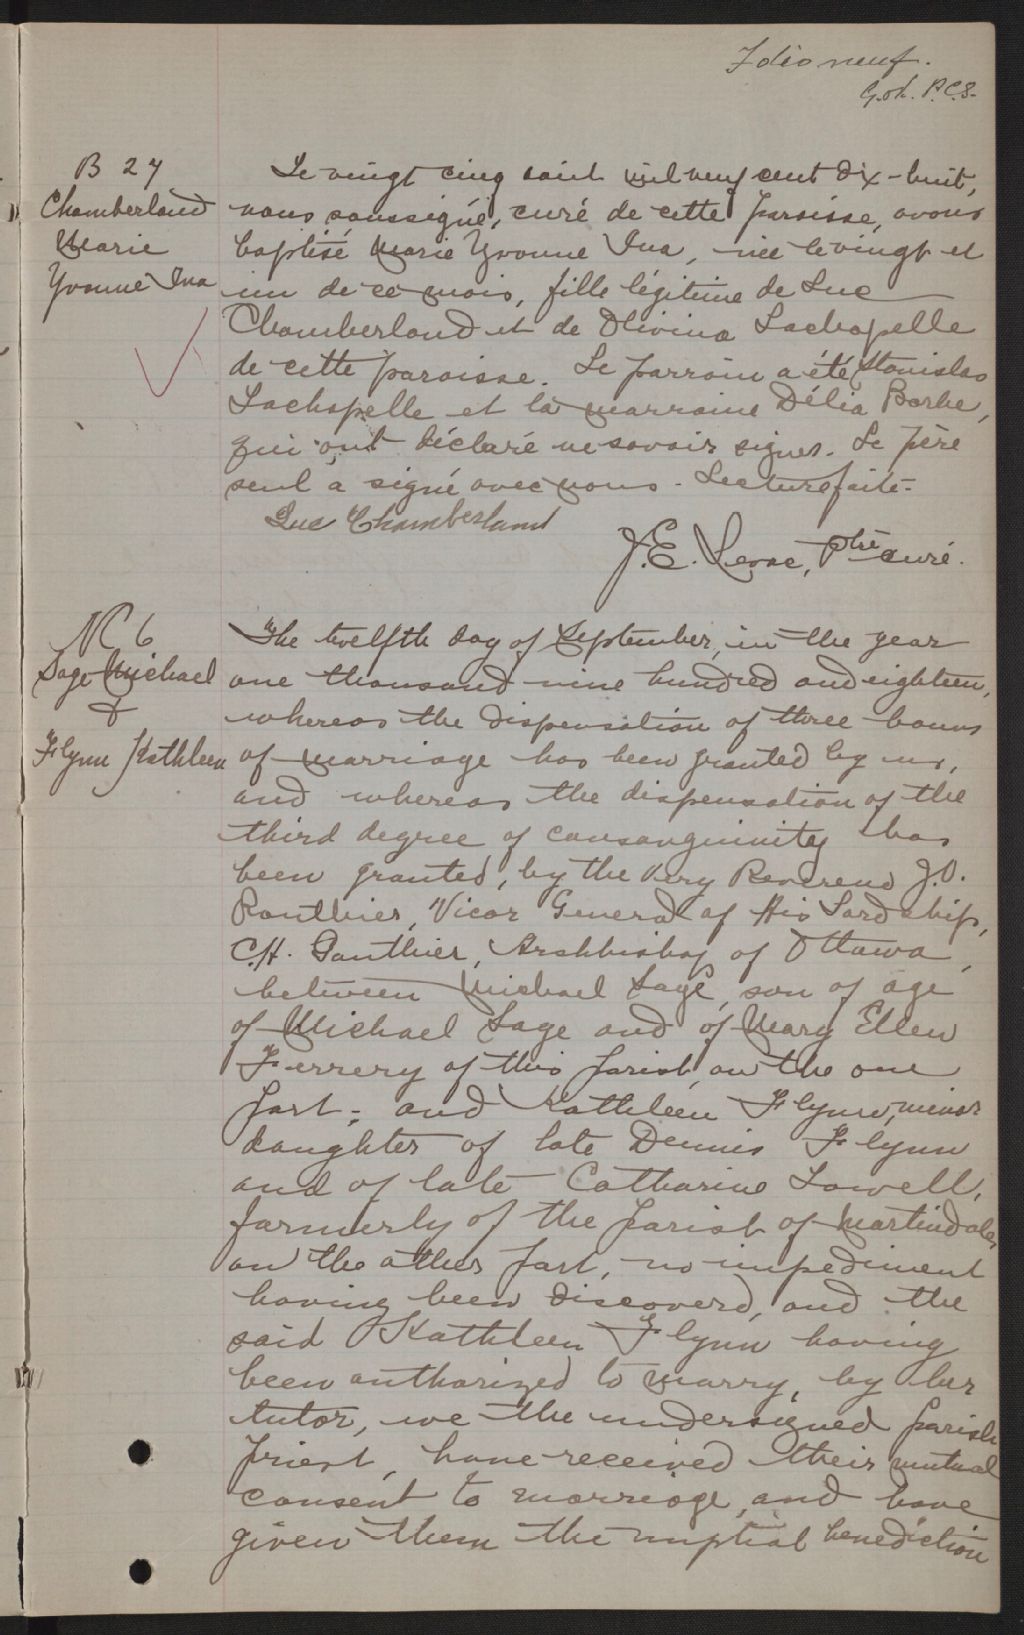 Folio neuf.
G.oh. P.C.S.
B 27
Chamberland
Marie
Yvonne Ina
Le vingt cinq août mil neuf cent dix-huit,
nous soussigné, curé de cette paroisse, avons
baptisé Marie Yvonne Ina, née le vingt et
un de ce mois, fille légitime de Luc
Chamberland et de Divina Lachapelle
de cette paroisse. Le parrain a été Stanislas
Lachapelle et la marraine Délia Barbe,
qui ont déclaré ne savoir signer. Le père
seul a signé avec nous. Lecture faite.
Luc Chamberland
J.E. Levac, Ptre curé.
M 6
Sage Michael
&
Flynn Kathleen
The twelfth day of September, in the year
one thousand nine hundred and eighteen,
whereas the dispensation of three banns
of marriage has been granted by us,
and whereas the dispensation of the
third degree of consanguinity has
been granted, by the Very Reverend J.O.
Routhier, Vicar General of His Lordship,
C.H. Gauthier, Archbishop of Ottawa,
between Michael Sage, son of age
of Michael Sage and of Mary Ellen
Ferrery of this parish, on the one
part; and Kathleen Flynn, minor
daughter of late Dennis Flynn
and of late Catharine Lowell,
formerly of the parish of Martindale,
on the other part, no impediment
having been discoverd, and the
said Kathleen Flynn having
been authorized to marry, by her
tutor, we the undersigned parish
priest, have received their mutual
consent to marriage, and have
given them the nuptial benediction